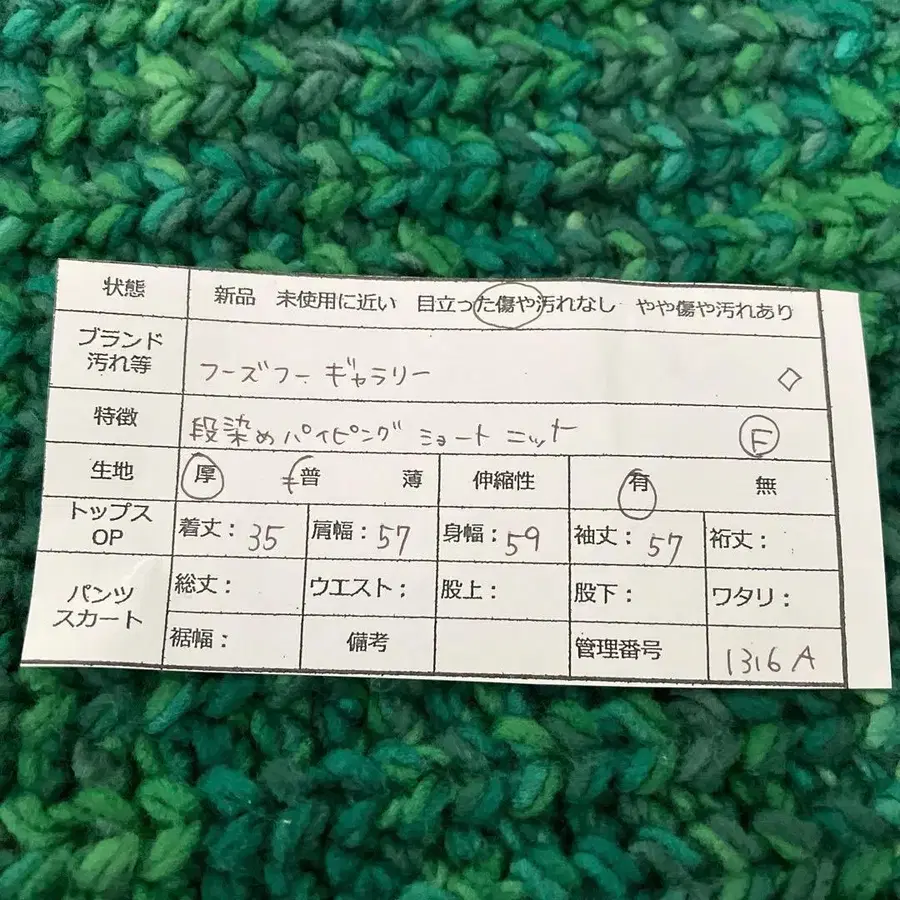 状態 新品 未使用に近い 目立った傷や汚れなし やや傷や汚れあり
ブランド
汚れ等 フーズフーギャラリー ◇
特徴 段染めパイピング ショート ニット F
生地 厚 普 薄 伸縮性 有 無
トップス
OP 着丈：35 肩幅：57 身幅：59 袖丈：57 裄丈：
パンツ
スカート 総丈： ウエスト： 股上： 股下： ワタリ：
裾幅： 備考 管理番号 1316A